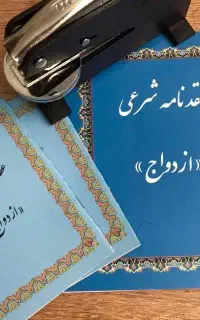 قدنامه شرعی
« ازدواج »
« ازدواج